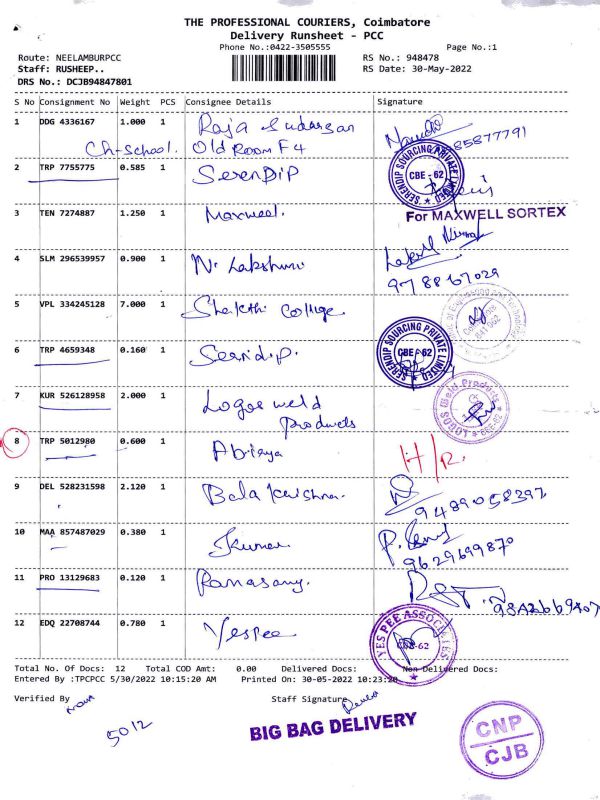 THE PROFESSIONAL COURIERS, Coimbatore
Delivery Runsheet - PCC
Phone No.:0422-3505555
Page No.:1
Route: NEELAMBURPCC
RS No.: 948478
Staff: RUSHEEP..
RS Date: 30-May-2022
DRS No.: DCJB94847801
S No Consignment No Weight PCS Consignee Details Signature
1 DDG 4336167 1.000 1 Raja Sudarsan
Ch-school. Old Room F4
85877791
2 TRP 7755775 0.585 1 SerenDip
SERENDIP SOURCING PRIVATE LIMITED
CBE - 62
3 TEN 7274887 1.250 1 Maxweel.
For MAXWELL SORTEX
4 SLM 296539957 0.900 1 N. Lakshmi
9788867029
5 VPL 334245128 7.000 1 Shakthi College.
6 TRP 4659348 0.160 1 Seridip.
SERENDIP SOURCING PRIVATE LIMITED
CBE - 62
7 KUR 526128958 2.000 1 Logos weld
products
LOGOS Weld Products
CBE-62
8 TRP 5012980 0.600 1 Abinaya
H/R.
9 DEL 528231598 2.120 1 Bala Krishna.
9489058397
10 MAA 857487029 0.380 1 Kumar
9629699870
11 PRO 13129683 0.120 1 Ramasamy.
12 EDQ 22708744 0.780 1 Yespee
YES PEE ASSOCIATES
CBE-62
Total No. Of Docs: 12 Total COD Amt: 0.00 Delivered Docs: Non Delivered Docs:
Entered By :TPCPCC 5/30/2022 10:15:20 AM Printed On: 30-05-2022 10:23:20
Verified By
Staff Signature
5012
BIG BAG DELIVERY
CNP
CJB